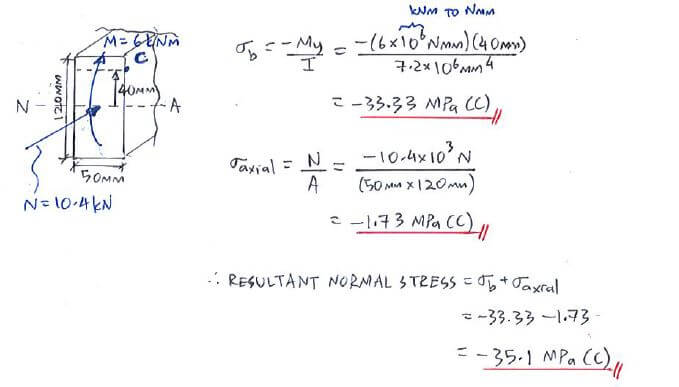 KNM TO NMM
M=6kNm
C
40MM
120MM
N
A
50MM
N=10.4kN
σb = -My/I = -(6x10⁶Nmm)(40mm)/7.2x10⁶mm⁴
= -33.33 MPa (C)
σaxial = N/A = -10.4x10³ N/(50mm x 120mm)
= -1.73 MPa (C)
∴ RESULTANT NORMAL STRESS = σb + σaxial
= -33.33 - 1.73
= -35.1 MPa (C)